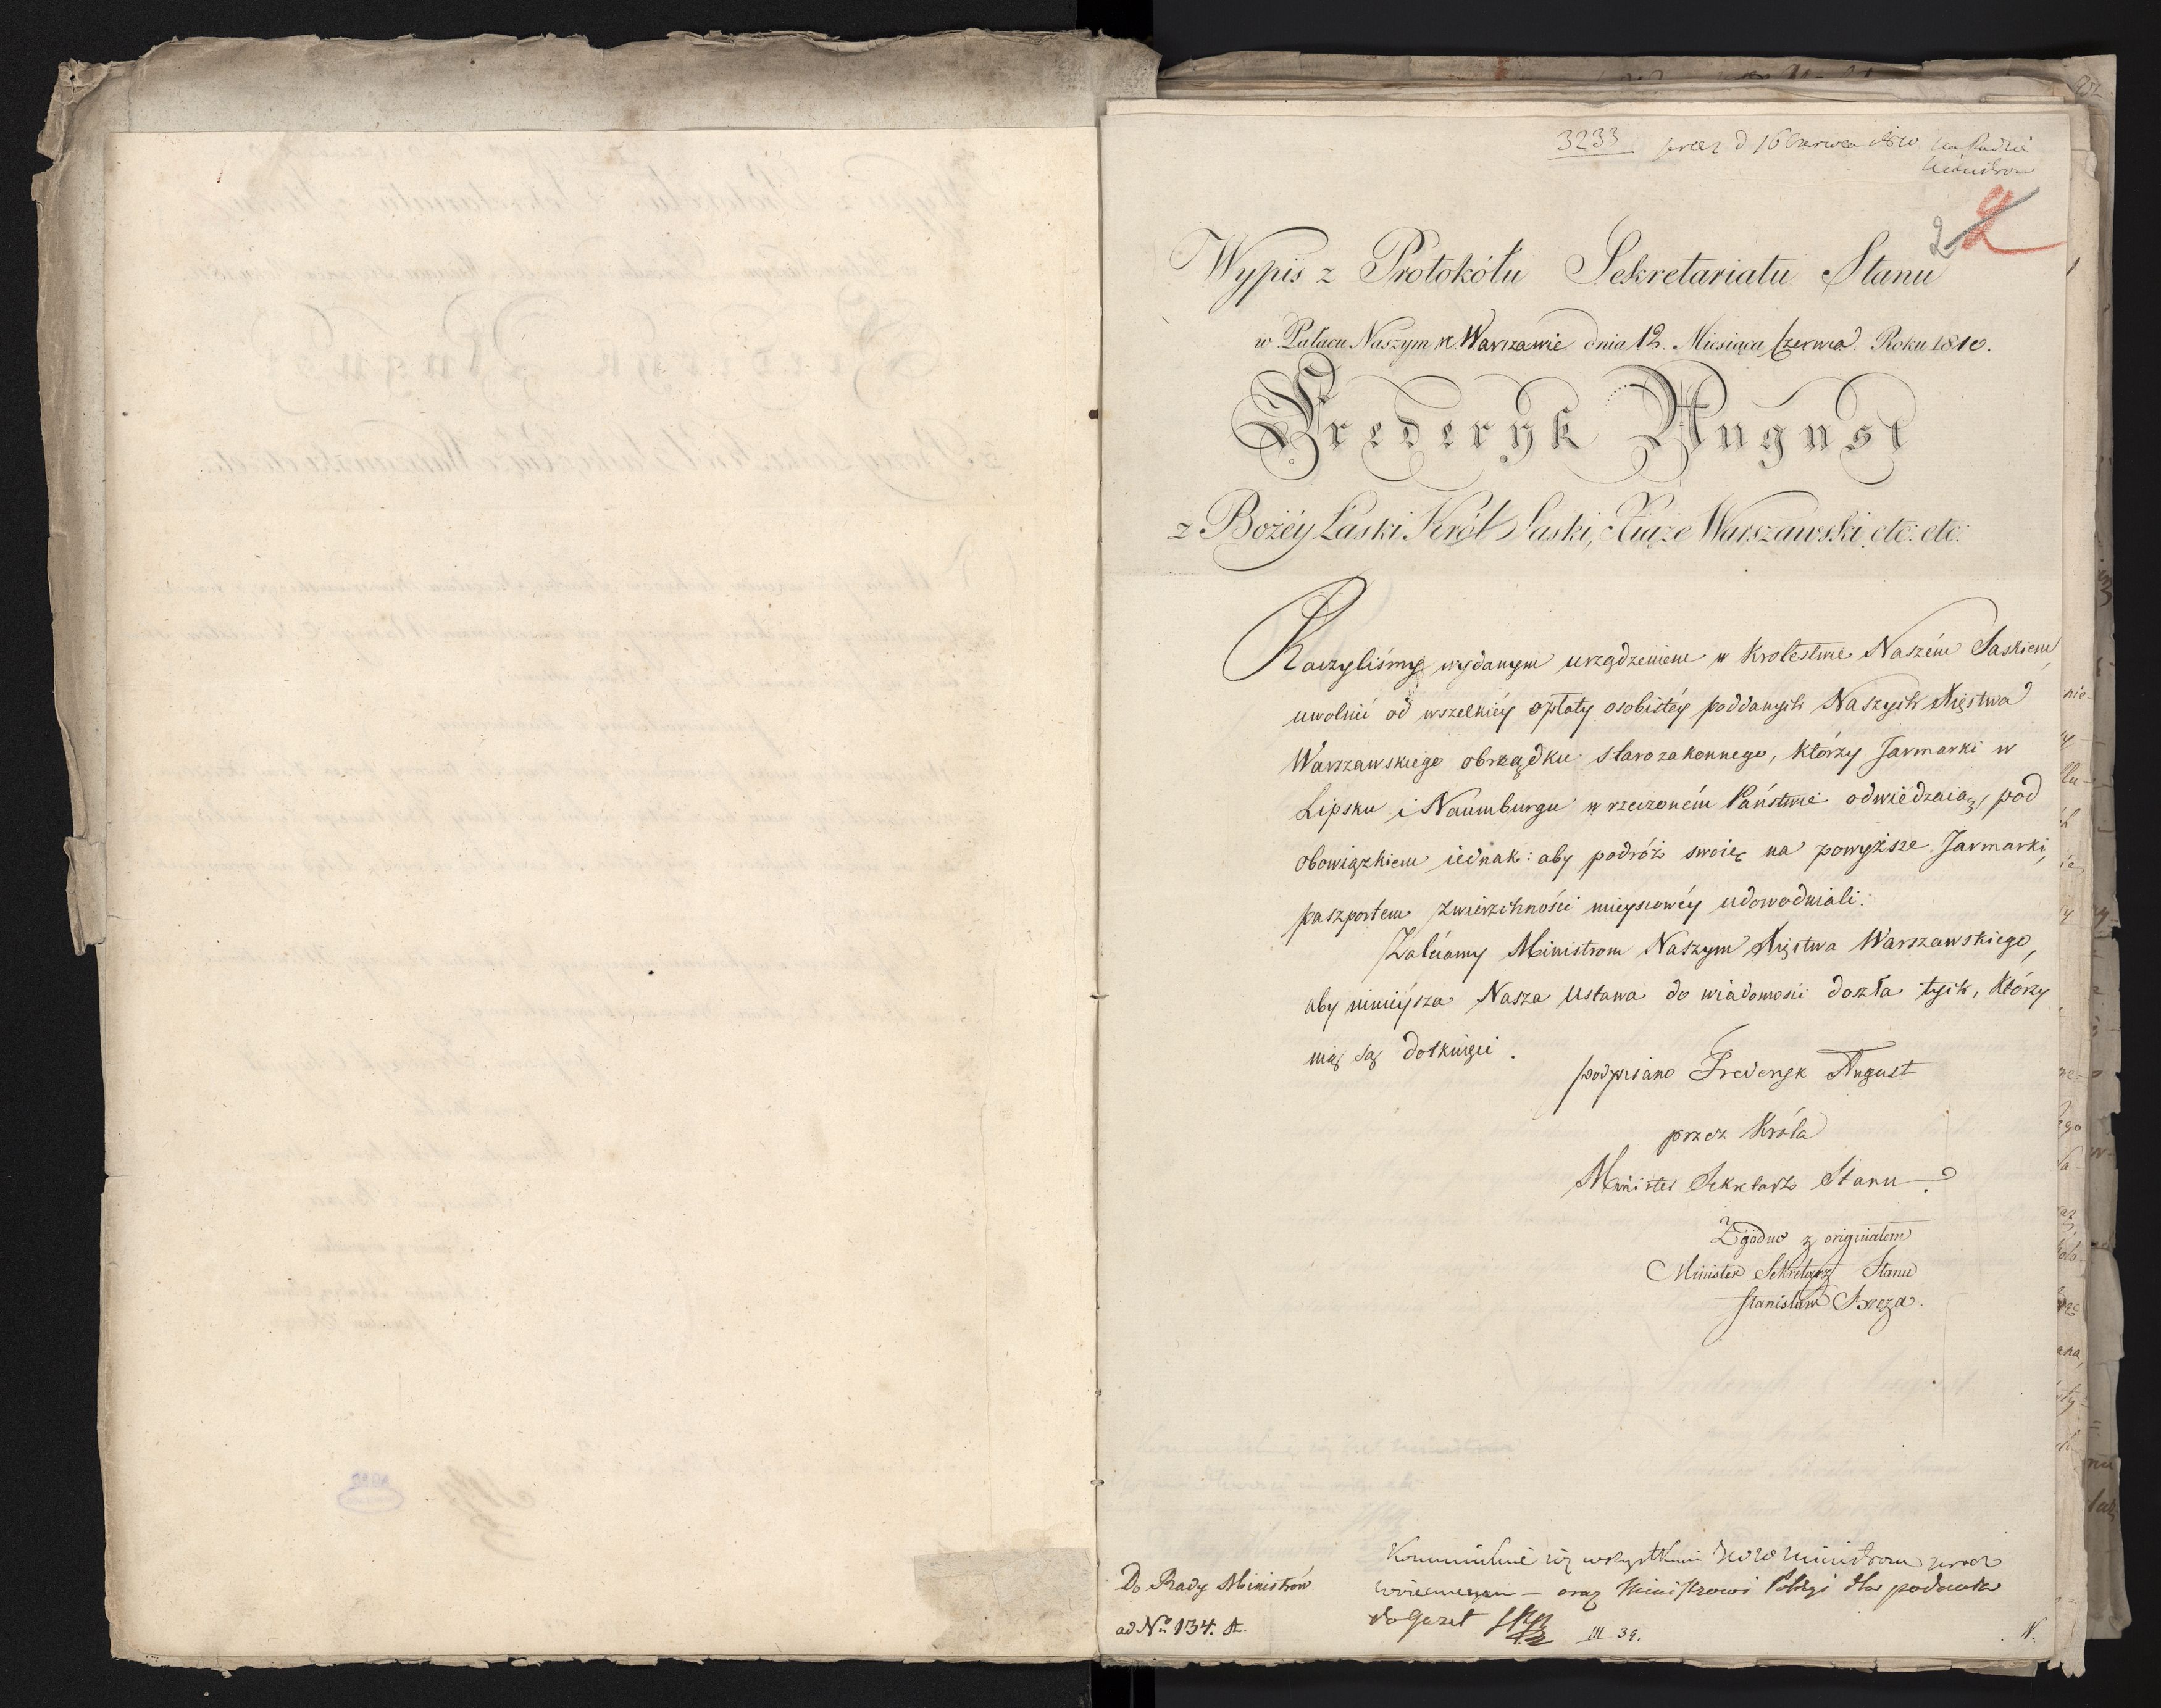 3233 prez d 16 Czerwca 1810 na Radzie
Ministrów
2 2
Wypis z Protokółu Sekretariatu Stanu
w Pałacu Naszym w Warszawie dnia 12. Miesiąca Czerwca Roku 1810.
Frederyk August
z Bożéy Łaski Król Saski, Xiąże Warszawski, etc: etc:
Raczyliśmy wydanym urządzeniem w Krolestwie Naszém Saskiem,
uwolnić od wszelkiéy opłaty osobistéy poddanych Naszych Xięstwa
Warszawskiego obrządku starozakonnego, którzy Jarmarki w
Lipsku i Naumburgu w rzeczoném Państwie odwiedzaią, pod
obowiązkiem iednak: aby podróż swoię na powyższe Jarmarki,
paszportem zwierzchności mieyscowéy udowodniali.
Zalécamy Ministrom Naszym Xięstwa Warszawskiego,
aby ninieysza Nasza Ustawa do wiadomości doszła tych, którzy
nią są dotknięci.
podpisano Frederyk August
przez Króla
Minister Sekretarz Stanu
Zgodno z originałem
Minister Sekretarz Stanu
Stanisław Breza.
Kommunikuie się wszystkim Ministrom
oraz Ministrowi Policyi dla podania
do Gazet
Do Rady Ministrów
ad No 134. St.
III 39.